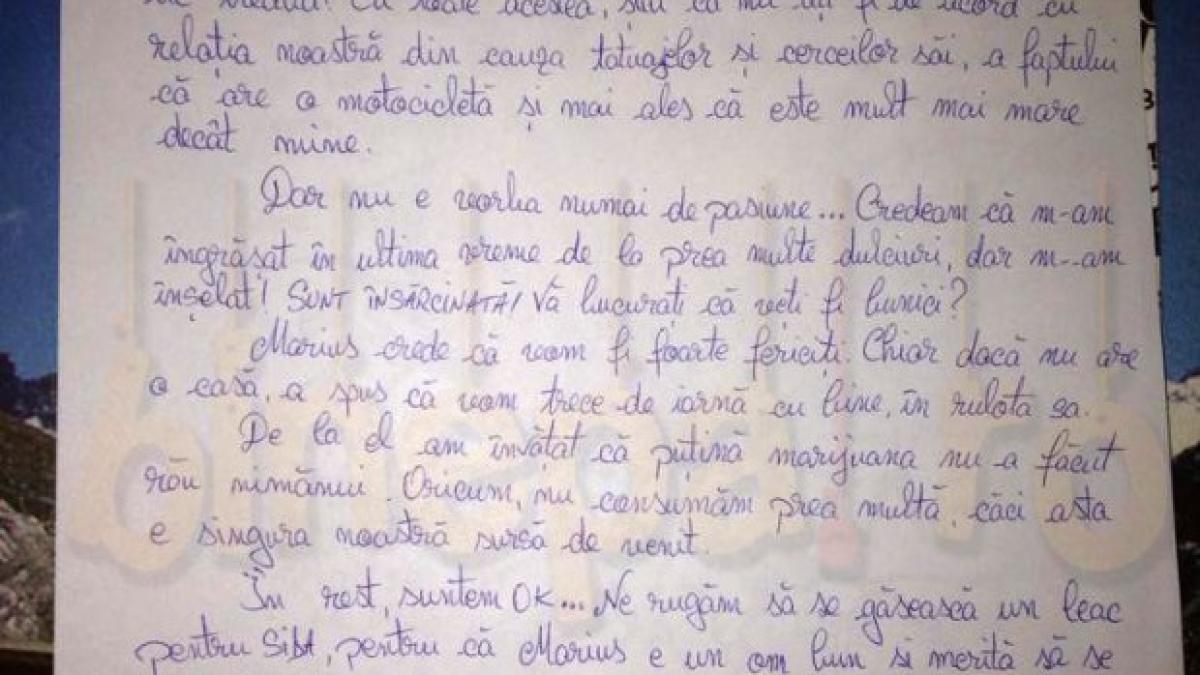 Cu toate acestea, știu că nu ați fi de acord cu
relația noastră din cauza tatuajelor și cerceilor săi, a faptului
că are o motocicletă și mai ales că este mult mai mare
decât mine.
Dar nu e vorba numai de pasiune... Credeam că m-am
îngrășat în ultima vreme de la prea multe dulciuri, dar m-am
înșelat! SUNT ÎNSĂRCINATĂ! Vă bucurați că veți fi bunici?
Marius crede că vom fi foarte fericiți. Chiar dacă nu are
o casă, a spus că vom trece de iarnă cu bine, în rulota sa.
De la el am învățat că puțină marijuana nu a făcut
rău nimănui. Oricum, nu consumăm prea multă, căci asta
e singura noastră sursă de venit.
În rest, suntem OK... Ne rugăm să se găsească un leac
pentru SIDA, pentru că Marius e un om bun si merită să se